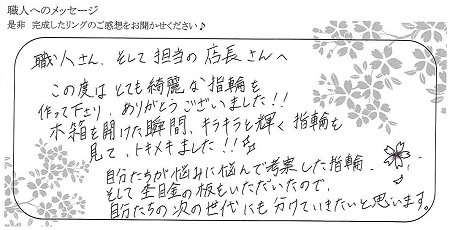 職人へのメッセージ
是非 完成したリングのご感想をお聞かせください♪
職人さん、そして担当の店長さんへ
この度はとても綺麗な指輪を
作って下さり、ありがとうございました!!
木箱を開けた瞬間、キラキラと輝く指輪を
見て、トキメキました!!
自分たちが悩みに悩んで考案した指輪。
そして杢目金の板をいただいたので、
自分たちの次の世代にも分けていきたいと思います。